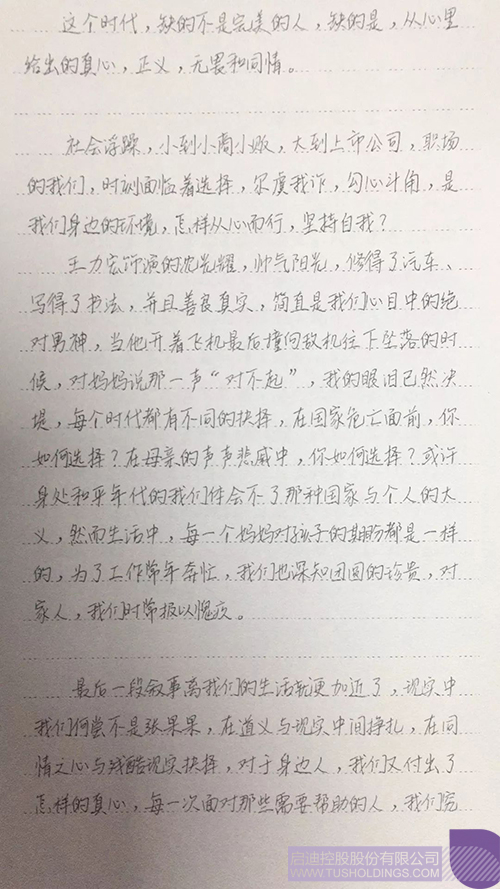 这个时代，缺的不是完美的人，缺的是，从心里
给出的真心，正义，无畏和同情。
社会浮躁，小到小商小贩，大到上市公司，职场
的我们，时刻面临着选择，尔虞我诈，勾心斗角，是
我们身边的环境，怎样从心而行，坚持自我？
王力宏饰演的沈光耀，帅气阳光，修得了汽车、
写得了书法，并且善良真实，简直是我们心目中的绝
对男神，当他开着飞机最后撞向敌机往下坠落的时
候，对妈妈说那一声“对不起”，我的眼泪已然决
堤，每个时代都有不同的抉择，在国家危亡面前，你
如何选择？在母亲的声声悲戚中，你如何选择？或许
身处和平年代的我们体会不了那种国家与个人的大
义，然而生活中，每一个妈妈对孩子的期盼都是一样
的，为了工作常年奔忙，我们也深知团圆的珍贵，对
家人，我们时常报以愧疚。
最后一段叙事离我们的生活就更加近了，现实中
我们何尝不是张果果，在道义与现实中间挣扎，在同
情之心与残酷现实抉择，对于身边人，我们又付出了
怎样的真心，每一次面对那些需要帮助的人，我们究
启迪控股股份有限公司
WWW.TUSHOLDINGS.COM